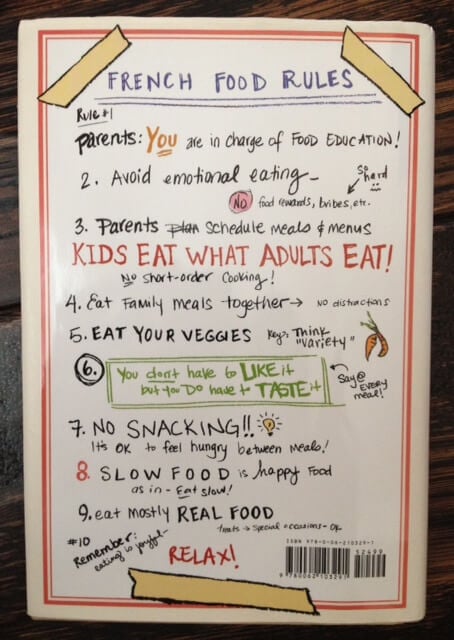 FRENCH FOOD RULES
Rule #1
Parents: YOU are in charge of FOOD EDUCATION!
2. Avoid emotional eating-
So hard
NO food rewards, bribes, etc.
3. Parents plan schedule meals & menus
KIDS EAT WHAT ADULTS EAT!
No short-order cooking!
4. Eat family meals together → no distractions
5. EAT YOUR VEGGIES Key: Think
"variety"
6. You don't have to LIKE it
but you DO have to TASTE it
Say @ EVERY meal!
7. NO SNACKING!!
It's OK to feel hungry between meals!
8. SLOW FOOD is happy food
as in - Eat slow!
9. eat mostly REAL FOOD
treats → special occasions - OK
#10
Remember:
eating is joyful-
RELAX!
ISBN 978-0-06-210329-7
52499
9 780062 103297